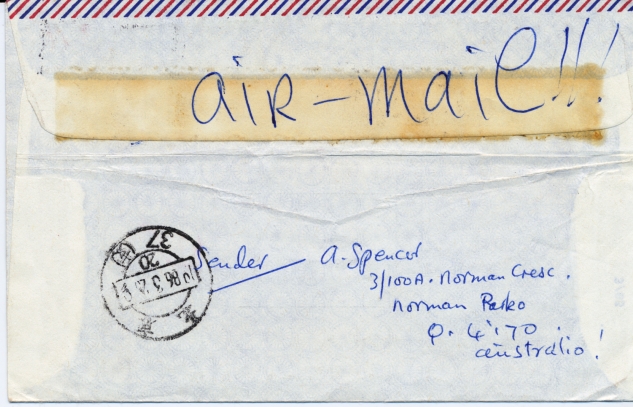 aiR-mail!!!
Sender
A. Spencer
3/100A. Norman Cresc.
Norman Park
Q. 4170.
Australia!
37
20